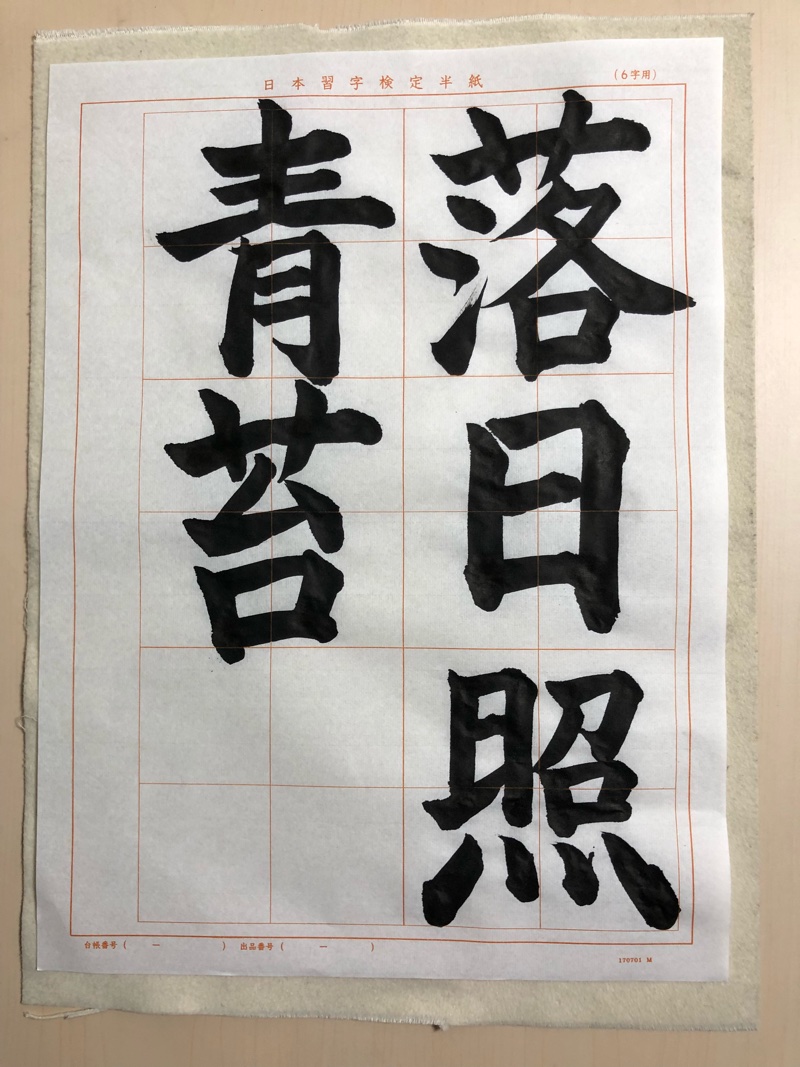 日本習字検定半紙
(6字用)
落日照
青苔
台帳番号(　ー　)　出品番号(　ー　)
170701 M